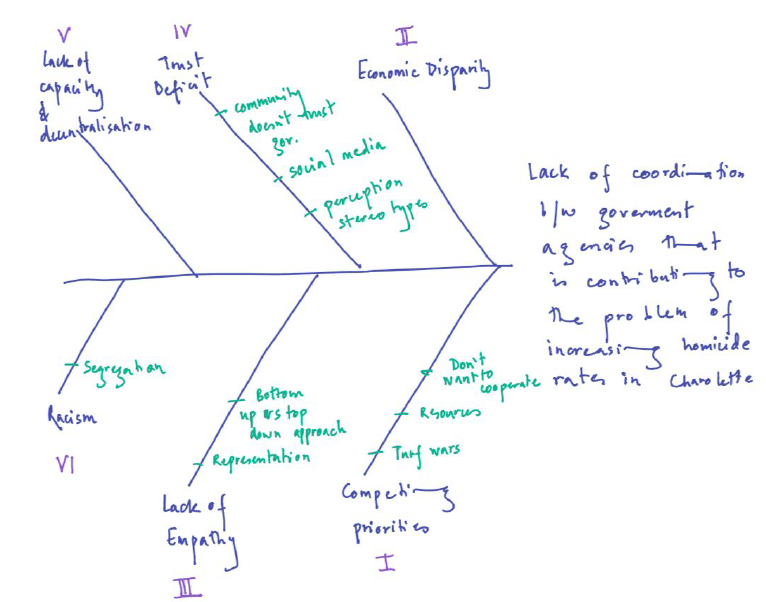 V
Lack of
capacity
&
decentralisation
IV
Trust
Deficit
community
doesn't trust
gov.
social media
perception
stereo types
II
Economic Disparity
Lack of coordination
b/w goverment
agencies that
is contributing to
the problem of
increasing homicide
rates in Charolette
Segregation
Racism
VI
Bottom
up vs top
down approach
Representation
Lack of
Empathy
III
Don't
want to
cooperate
Resources
Turf wars
Competing
priorities
I